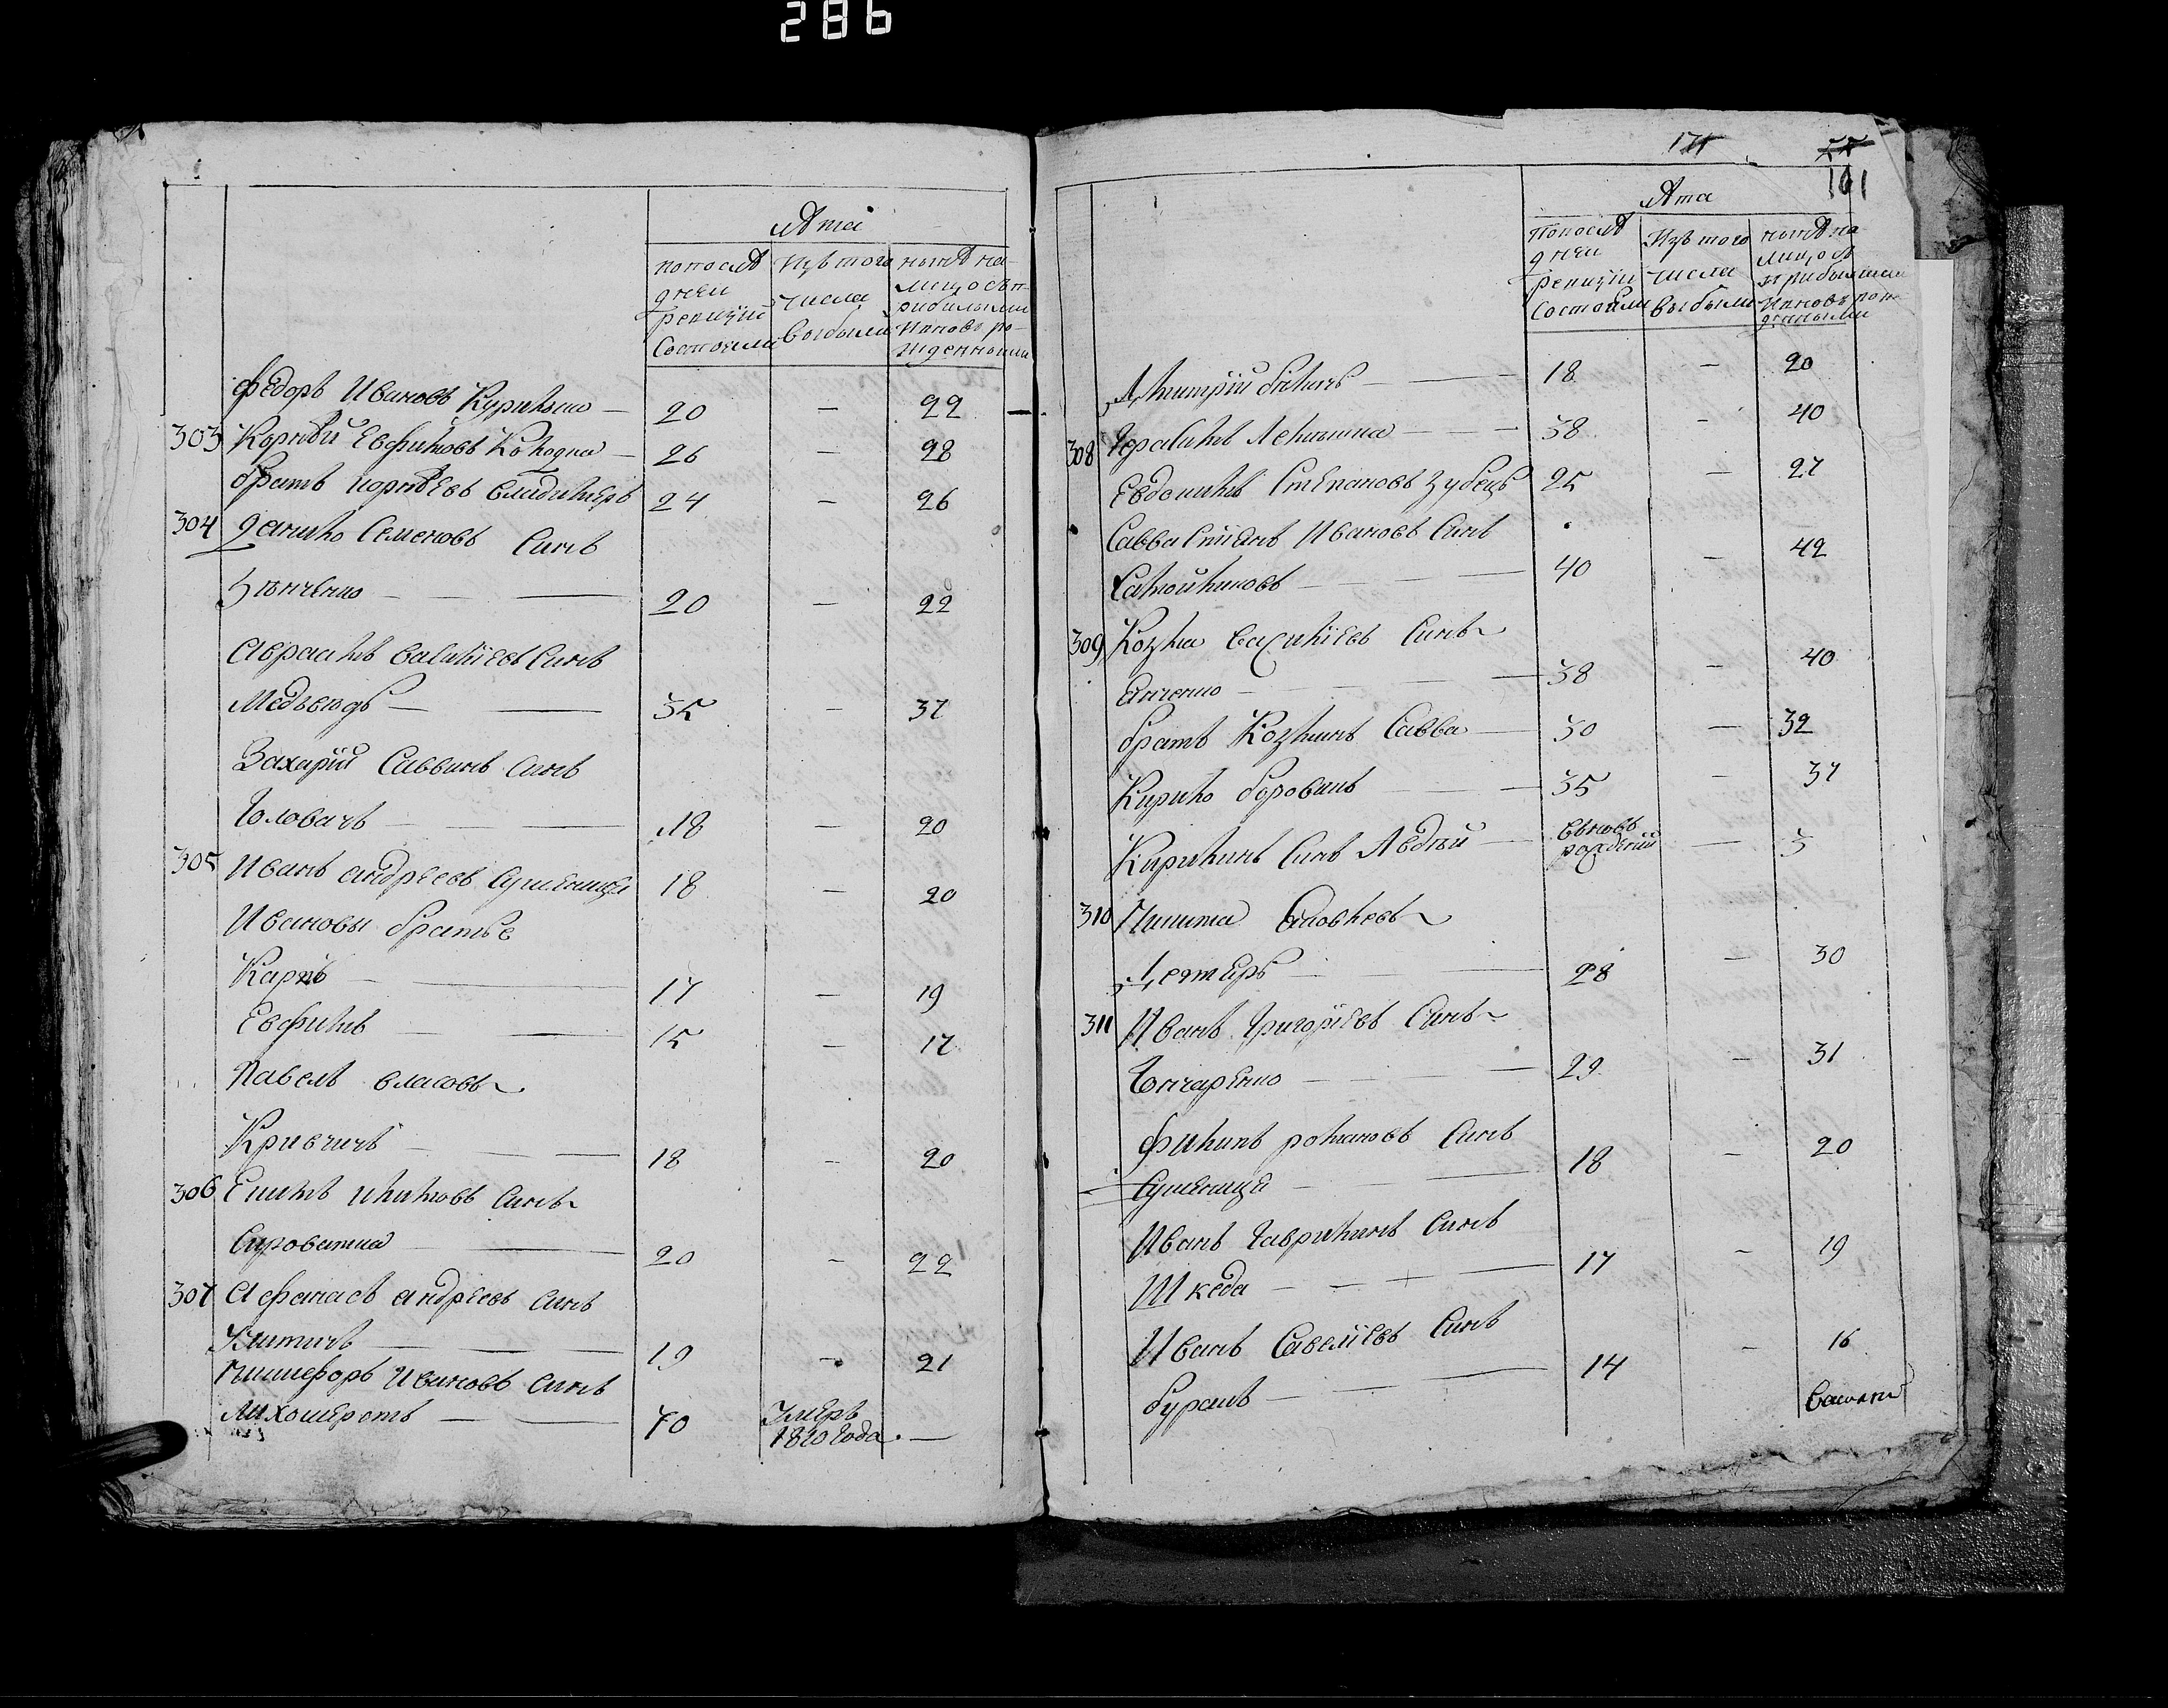 286
Лѣта
по послѣ
дней
ревизіи
состояли
Изъ того
числа
выбыли
нынѣ на
лицо съ п
рибылыми
и вновь ро
жденными
Федоръ Ивановъ Курилько — 20 — 22
303 Корнѣй Евфимовъ Колодка — 26 — 28
братъ Корнѣевъ Владимеръ 24 — 26
304 Данило Семеновъ Синъ
Зѣнченко — 20 — 22
Авраамъ Василіевъ Синъ
Медвѣдь — 35 — 37
Захарій Саввинъ Синъ
Головачъ — 18 — 20
305 Иванъ Андреевъ Сушеница 18 — 20
Ивановы братье
Карпъ — 17 — 19
Евфимъ — 15 — 17
Павелъ Власовъ
Кривчичъ — 18 — 20
306 Екимъ Климовъ Синъ
Сироватка — 20 — 22
307 Афанасъ Андреевъ Синъ
— 19 — 21
Никифоръ Ивановъ Синъ
Лихошерстъ — 70 Умеръ
1820 года. —
171
101
Лѣта
по послѣ
дней
ревизіи
состояли
Изъ того
числа
выбыли
нынѣ на
лицо съ
прибылыми
и вновь рож
данными
Дмитрій Билимъ — 18 — 20
308 Герасимъ — 38 — 40
Евдокимъ Степановъ Зубецъ 25 — 27
Савва Ивановъ Синъ
Самойленовъ — 40 — 42
309 Козма Василіевъ Синъ
Янченко — 38 — 40
братъ Козминъ Савва — 30 — 32
Кирило Борованъ — 35 — 37
Кирилинъ Синъ Авдѣй — вновь
рожденій — 3
310 Никита Яковлевъ
Дегтяръ — 28 — 30
311 Иванъ Григоріевъ Синъ
Гончаренко — 29 — 31
Филипъ Романовъ Синъ
Сушеница — 18 — 20
Иванъ Гавриловъ Синъ
Шкеда — 17 — 19
Иванъ Савеліевъ Синъ
Буранъ — 14 — 16